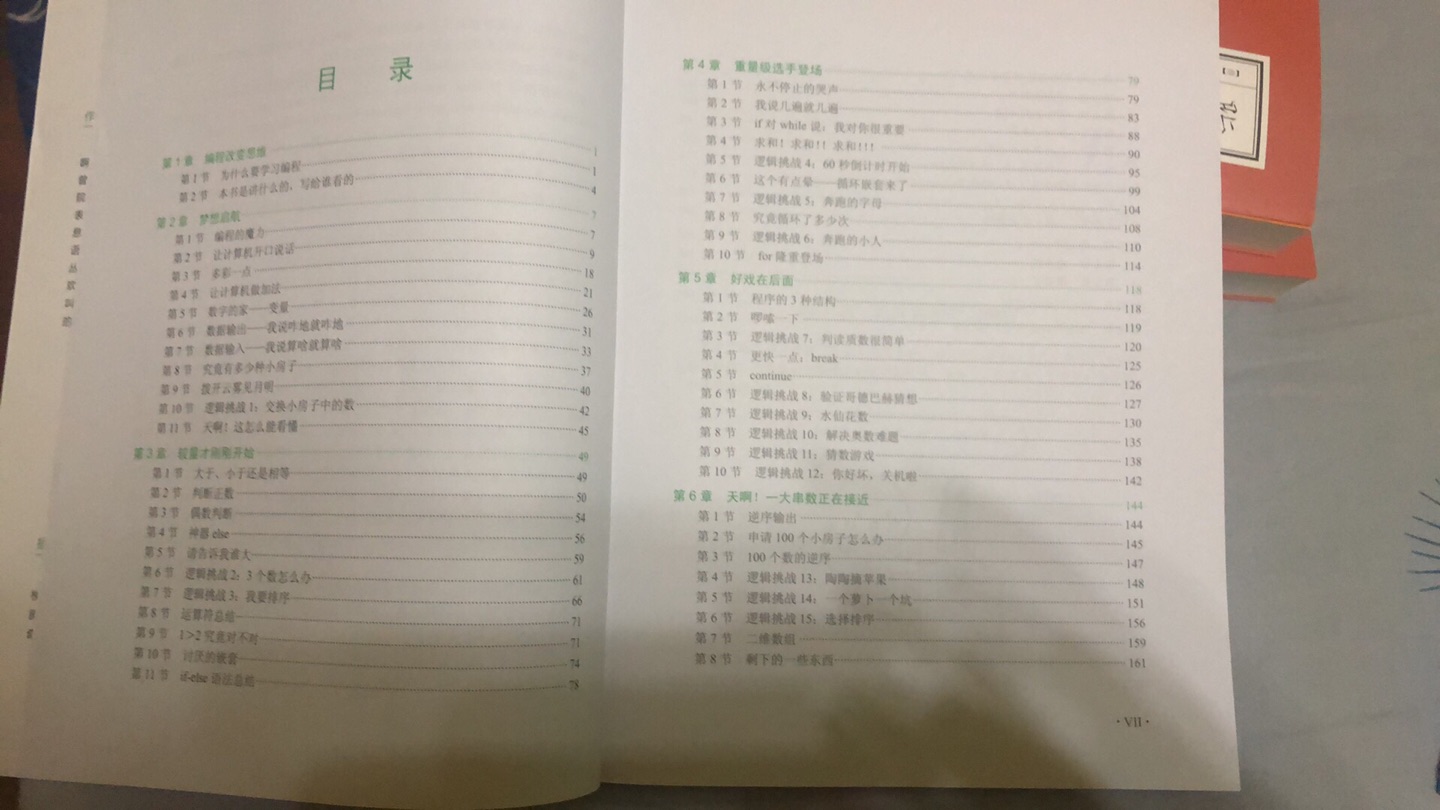 目 录
第 1 章 编程改变思维 1
第 1 节 为什么要学习编程 1
第 2 节 本书是讲什么的,写给谁看的 4
第 2 章 梦想启航 7
第 1 节 编程的魔力 7
第 2 节 让计算机开口说话 9
第 3 节 多彩一点 18
第 4 节 让计算机做加法 21
第 5 节 数字的家——变量 26
第 6 节 数据输出——我说咋地就咋地 31
第 7 节 数据输入——我说算啥就算啥 33
第 8 节 究竟有多少种小房子 37
第 9 节 拨开云雾见月明 40
第 10 节 逻辑挑战 1:交换小房子中的数 42
第 11 节 天啊!这怎么能看懂 45
第 3 章 较量才刚刚开始 49
第 1 节 大于、小于还是相等 49
第 2 节 判断正数 50
第 3 节 偶数判断 54
第 4 节 神器 else 56
第 5 节 请告诉我谁大 59
第 6 节 逻辑挑战 2:3 个数怎么办 61
第 7 节 逻辑挑战 3:我要排序 66
第 8 节 运算符总结 71
第 9 节 1>2 究竟对不对 71
第 10 节 讨厌的嵌套 74
第 11 节 if-else 语法总结 78
第 4 章 重量级选手登场 79
第 1 节 永不停止的哭声 79
第 2 节 我说几遍就几遍 83
第 3 节 if 对 while 说:我对你很重要 88
第 4 节 求和!求和!!求和!!! 90
第 5 节 逻辑挑战 4:60 秒倒计时开始 95
第 6 节 这个有点晕——循环嵌套来了 99
第 7 节 逻辑挑战 5:奔跑的字母 104
第 8 节 究竟循环了多少次 108
第 9 节 逻辑挑战 6:奔跑的小人 110
第 10 节 for 隆重登场 114
第 5 章 好戏在后面 118
第 1 节 程序的 3 种结构 118
第 2 节 啰嗦一下 119
第 3 节 逻辑挑战 7:判读质数很简单 120
第 4 节 更快一点:break 125
第 5 节 continue 126
第 6 节 逻辑挑战 8:验证哥德巴赫猜想 127
第 7 节 逻辑挑战 9:水仙花数 130
第 8 节 逻辑挑战 10:解决奥数难题 135
第 9 节 逻辑挑战 11:猜数游戏 138
第 10 节 逻辑挑战 12:你好坏,关机啦 142
第 6 章 天啊!一大串数正在接近 144
第 1 节 逆序输出 144
第 2 节 申请 100 个小房子怎么办 145
第 3 节 100 个数的逆序 147
第 4 节 逻辑挑战 13:陶陶摘苹果 148
第 5 节 逻辑挑战 14:一个萝卜一个坑 151
第 6 节 逻辑挑战 15:选择排序 156
第 7 节 二维数组 159
第 8 节 剩下的一些东西 161
· VII ·